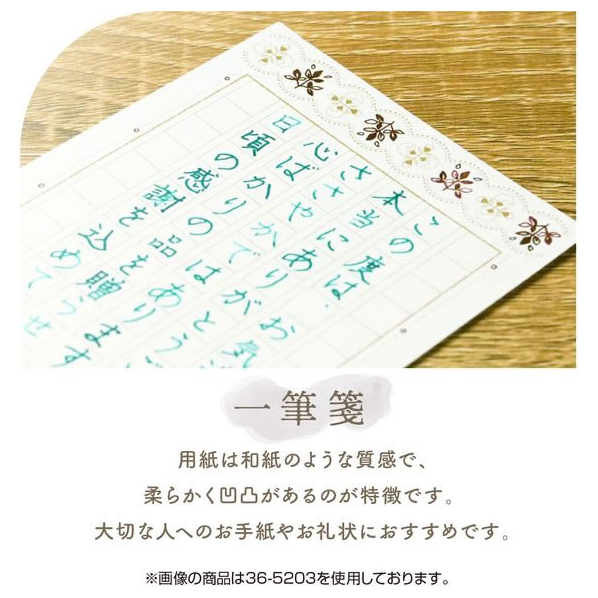 この度は、お気
本当にありがとうご
ささやかではあり
心ばかりの品を贈ります
日頃の感謝を込めて
一筆箋
用紙は和紙のような質感で、
柔らかく凹凸があるのが特徴です。
大切な人へのお手紙やお礼状におすすめです。
※画像の商品は36-5203を使用しております。